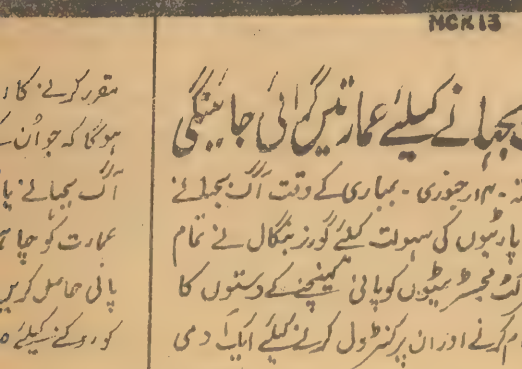 MCK13
بجہانے کیلئے عمارتیں گرائی جائینگی
جنوری - بمباری کے وقت آگ بجہانے
پارٹیوں کی سہولت کیلئے گورنر بنگال نے تمام
مجسٹریٹوں کو پانی کھینچنے کے دستوں کا
کرنے اور ان پر کنٹرول کرنے کیلئے ایک آدمی
مقرر کرنے کا
ہوگا کہ جو ان
آگ بجہانے
عمارت کو چا
پانی حاصل کریں
کو روکنے کیلئے